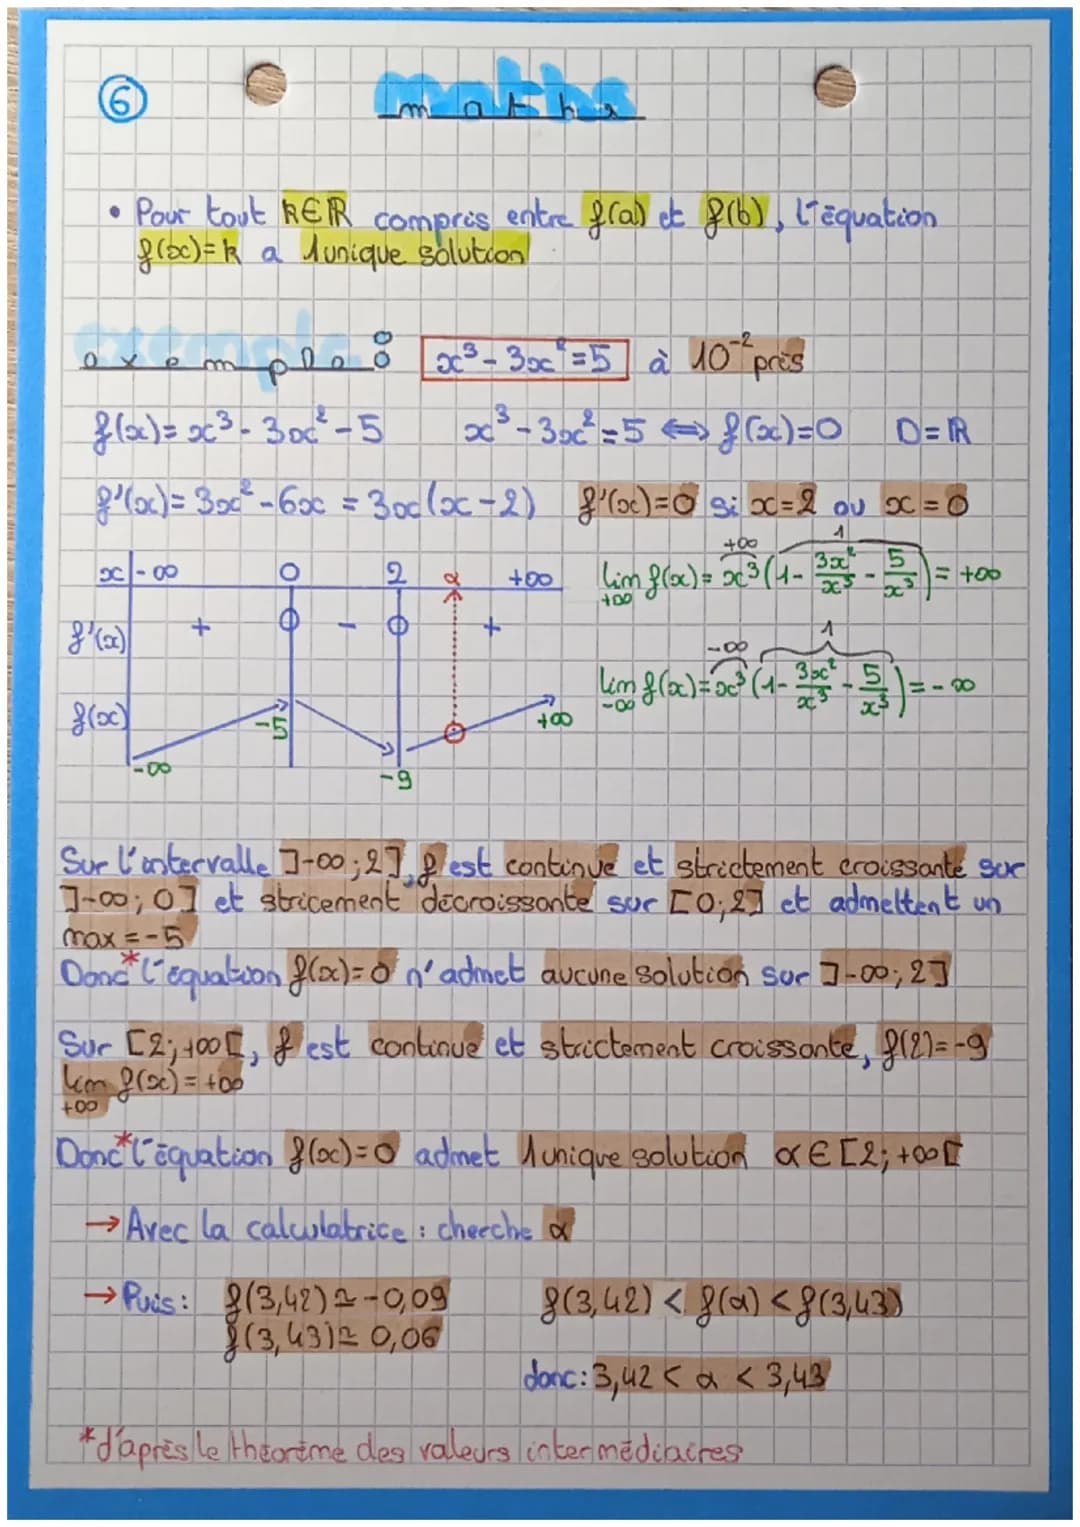 6
maths
• Pour tout k∈ℝ compris entre f(a) et f(b), l'équation
f(x)=k a 1 unique solution
exemple : x³-3x²=5 à 10⁻² près
f(x)= x³-3x²-5 x³-3x²=5 ⟺ f(x)=0 D=ℝ
f'(x)= 3x²-6x = 3x(x-2) f'(x)=0 si x=2 ou x=0
x -∞ 0 2 α +∞
f'(x) + 0 - 0 +
f(x) -∞ -5 -9 +∞
+∞ 1
lim f(x)= x³(1- 3x²/x³ - 5/x³) = +∞
+∞
-∞ 1
lim f(x)= x³(1- 3x²/x³ - 5/x³) = -∞
-∞
Sur l'intervalle ]-∞;2], f est continue et strictement croissante sur
]-∞;0] et stricement décroissante sur [0;2] et admettent un
max = -5
Donc* l'équation f(x)=0 n'admet aucune solution sur ]-∞;2]
Sur [2;+∞[, f est continue et strictement croissante, f(2)=-9
lim f(x)=+∞
+∞
Donc* l'équation f(x)=0 admet 1 unique solution α∈[2;+∞[
→ Avec la calculatrice : cherche α
→ Puis : f(3,42)≃-0,09 f(3,42) < f(α) < f(3,43)
f(3,43)≃ 0,06
donc : 3,42 < α < 3,43
*d'après le théorème des valeurs intermédiaires